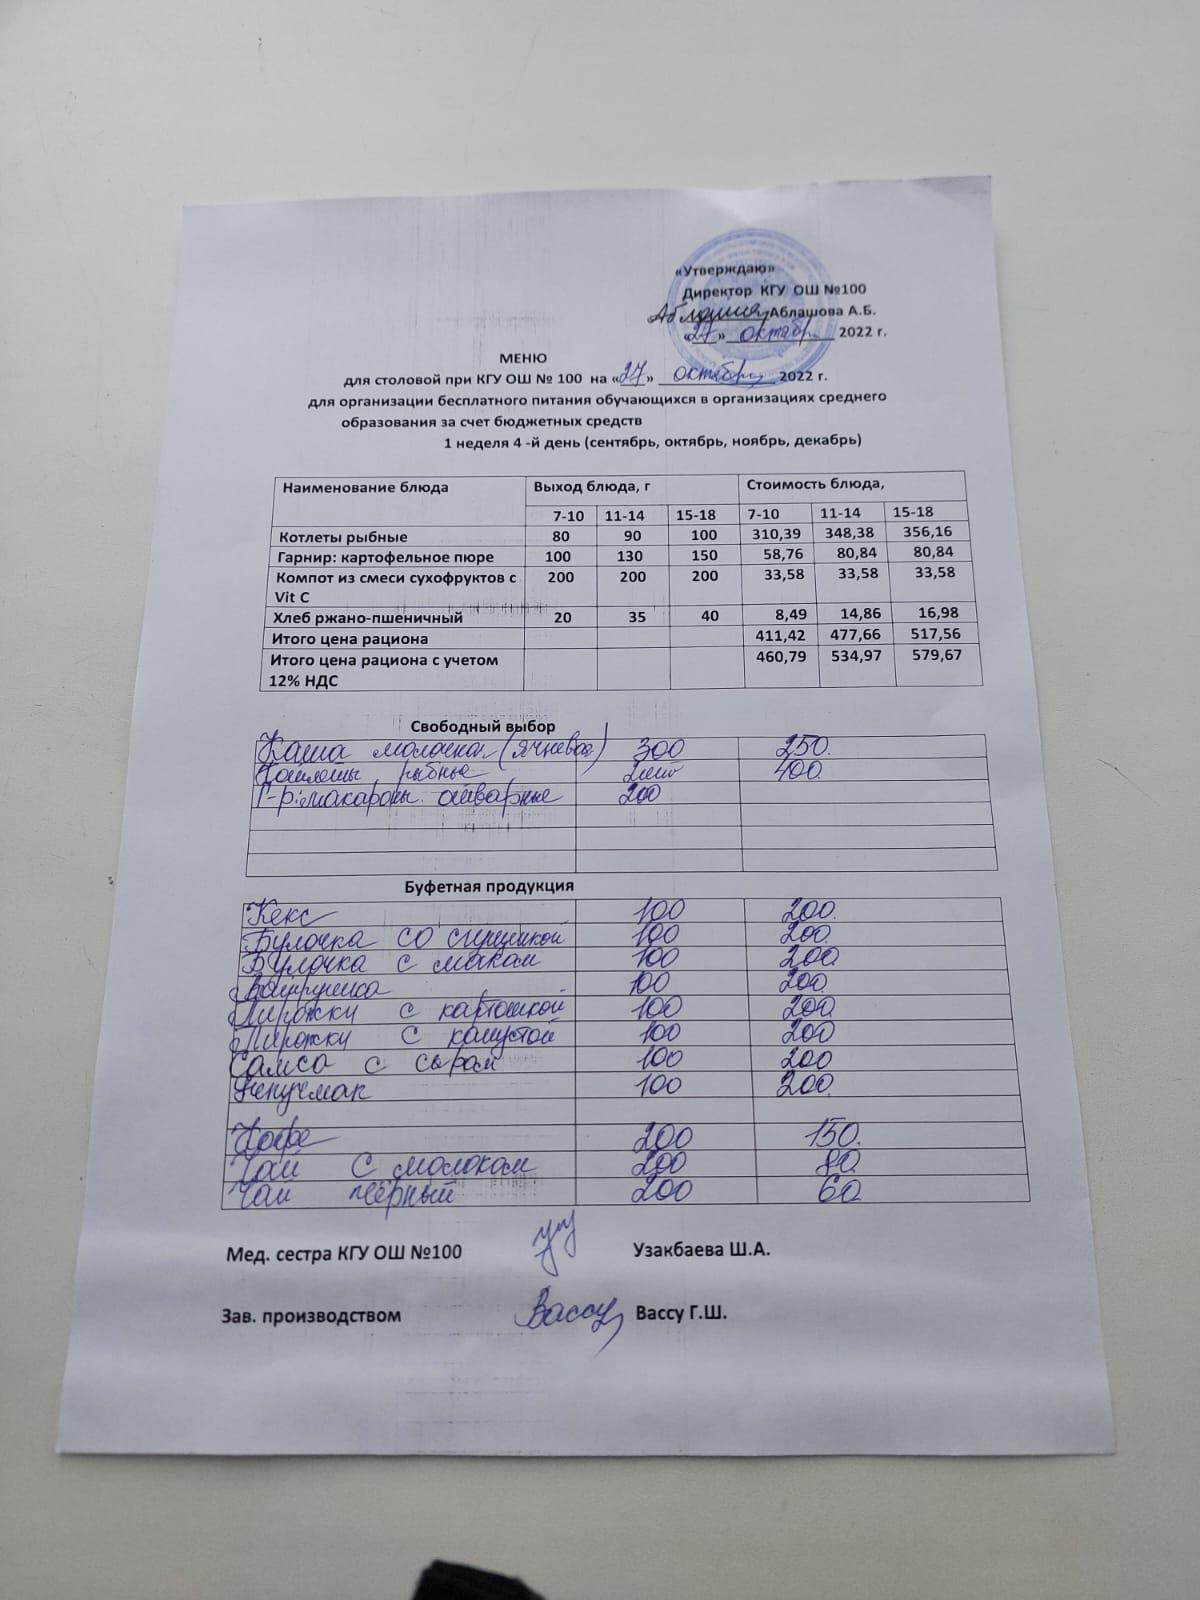 «Утверждаю»
Директор КГУ ОШ №100
Аблашова А.Б.
«27» октябр 2022 г.
МЕНЮ
для столовой при КГУ ОШ № 100 на «27» октября 2022 г.
для организации бесплатного питания обучающихся в организациях среднего
образования за счет бюджетных средств
1 неделя 4 -й день (сентябрь, октябрь, ноябрь, декабрь)
Наименование блюда Выход блюда, г Стоимость блюда,
7-10 11-14 15-18 7-10 11-14 15-18
Котлеты рыбные 80 90 100 310,39 348,38 356,16
Гарнир: картофельное пюре 100 130 150 58,76 80,84 80,84
Компот из смеси сухофруктов с 200 200 200 33,58 33,58 33,58
Vit C
Хлеб ржано-пшеничный 20 35 40 8,49 14,86 16,98
Итого цена рациона 411,42 477,66 517,56
Итого цена рациона с учетом 460,79 534,97 579,67
12% НДС
Свободный выбор
Каша молочная (ячневая) 300 250.
Котлеты рыбные 400
Г-р: макароны отварные 200
Буфетная продукция
Кекс 100 200.
Булочка со сгущенкой 100 200.
Булочка с маком 100 200.
Ватрушка 100 200
Пирожки с картошкой 100 200
Пирожки с капустой 100 200
Самса с сыром 100 200
Учпучмак 100 200.
Кофе 200 150.
Чай с молоком 200 80
Чай черный 200 60
Мед. сестра КГУ ОШ №100 Узакбаева Ш.А.
Зав. производством Вассу Вассу Г.Ш.